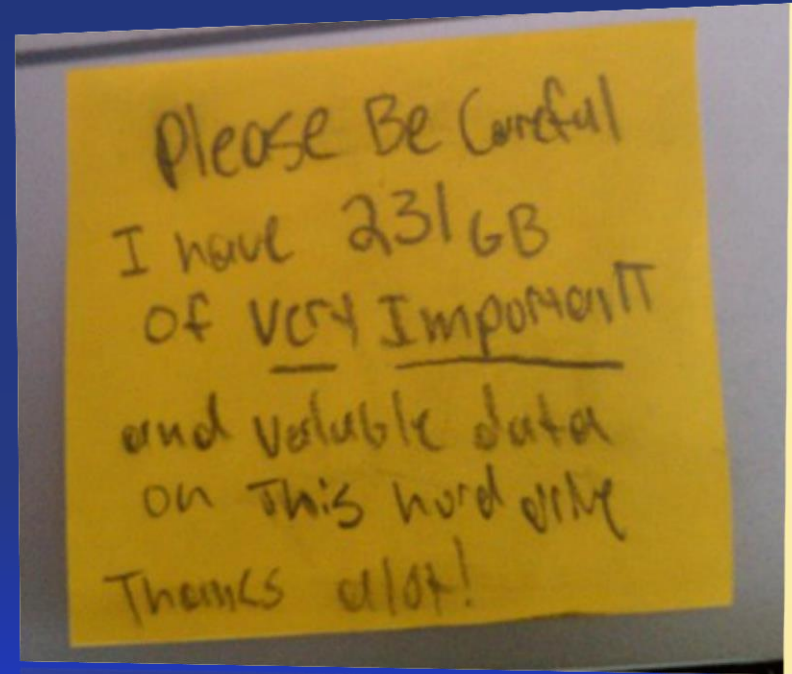 Please Be Careful
I have 231 GB
of very Important
and valuble data
on This hard drive
Thanks alot!